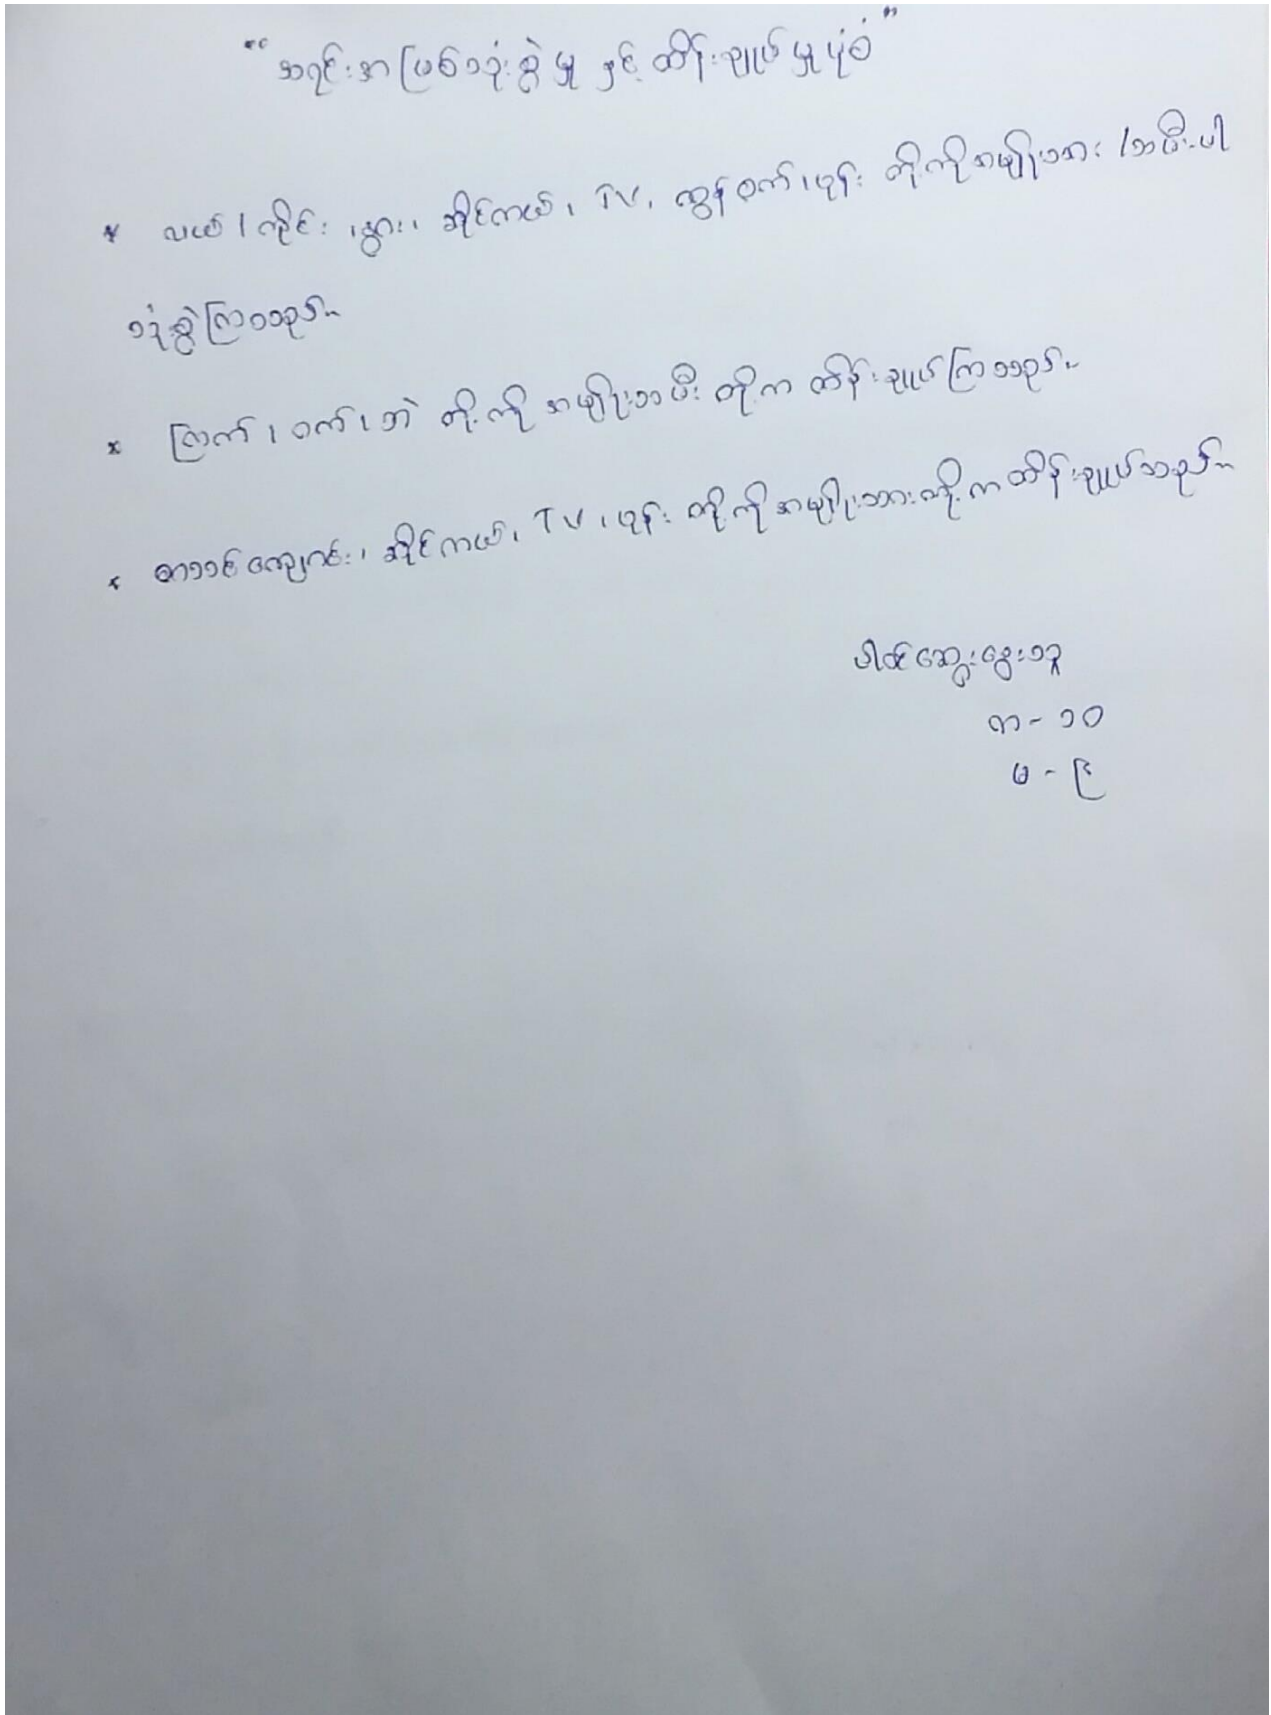 "အရင်းအမြစ်သုံးစွဲမှု နှင့် ထိန်းချုပ်မှုပုံစံ"
* လယ်၊ ကိုင်း၊ နွား၊ ဆိုင်ကယ်၊ TV၊ ထွန်စက်၊ ဖုန်း တို့ကို အမျိုးသား /သမီးပါ
သုံးစွဲကြသည်။
* ကြက်၊ ဝက်၊ ဘဲ တို့ကို အမျိုးသမီး တို့က ထိန်းချုပ်ကြသည်။
* စာသင်ကျောင်း၊ ဆိုင်ကယ်၊ TV၊ ဖုန်း တို့ကို အမျိုးသားတို့က ထိန်းချုပ်သည်။
ပါဝင်ဆွေးနွေးသူ
ကျာ - ၁၀
မ - ၉